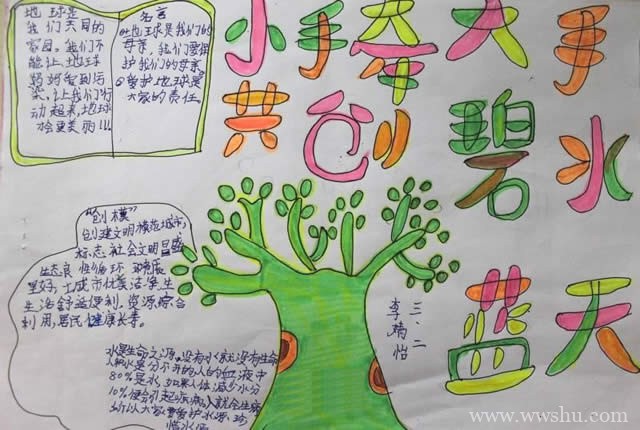 小手牵大手
共创碧水
蓝天
地球是
我们共同的
家园。我们不
能让地球
妈妈受到污
染,让我们行
动起来,地球
会更美丽!!!
名言
①地球是我们的
母亲,我们要保
护我们的母亲。
②爱护地球是
大家的责任。
"创模"
创建文明模范城市,
标志社会文明昌盛,
生态良性循环
城市优美洁净,生
生活舒适便利。资源综合
利用,居民健康长寿。
三、二
李精怡
水是生命之源,没有水就没有生命
人和水是分不开的人的血液中
80%是水,如果人体减少水分
10%便会引起疾病
所以大家要爱护水源、珍
惜水
www.wwshu.com